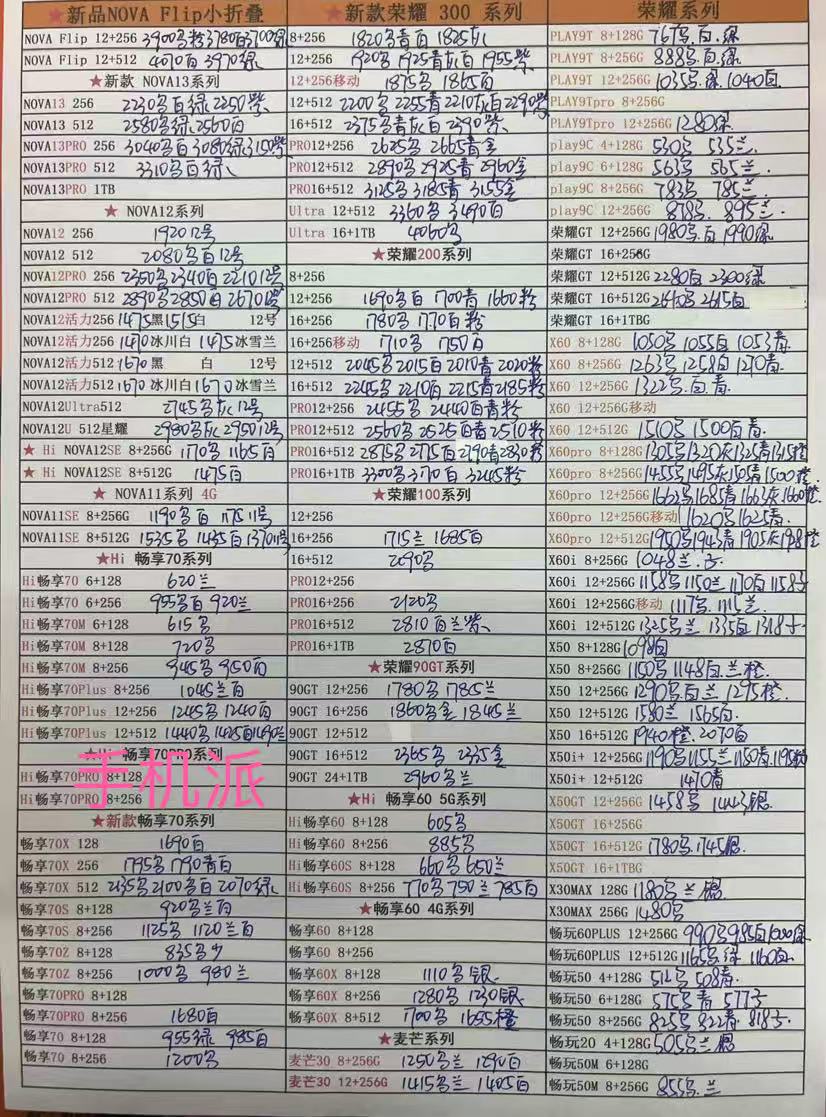 ★新品NOVA Flip小折叠
NOVA Flip 12+256 3900名粉3780白3700绿
NOVA Flip 12+512 4070白 3970绿
★新款 NOVA13系列
NOVA13 256 2230名白绿 2250紫
NOVA13 512 2580名绿 2560白
NOVA13PRO 256 3040名白 3080绿 3150紫
NOVA13PRO 512 3310名白绿
NOVA13PRO 1TB
★ NOVA12系列
NOVA12 256 1920 12号
NOVA12 512 2080名白12号
NOVA12PRO 256 2350名2340白2210 12号
NOVA12PRO 512 2890名2850白2670 12号
NOVA12活力256 1475黑1515白 12号
NOVA12活力256 1470冰川白 1475冰雪兰
NOVA12活力512 1670黑 白 12号
NOVA12活力512 1670冰川白 1670冰雪兰
NOVA12Ultra512 2745名灰12号
NOVA12U 512星耀 2980名灰2950 12号
★ Hi NOVA12SE 8+256G 1170名 1165白
★ Hi NOVA12SE 8+512G 1475白
★ NOVA11系列 4G
NOVA11SE 8+256G 1190名白 1175 11号
NOVA11SE 8+512G 1535名 1435白 1370 11号
★Hi 畅享70系列
Hi畅享70 6+128 620兰
Hi畅享70 6+256 955名白 920兰
Hi畅享70M 6+128 615名
Hi畅享70M 8+128 720名
Hi畅享70M 8+256 945名 950白
Hi畅享70Plus 8+256 1045兰白
Hi畅享70Plus 12+256 1245名 1240白
Hi畅享70Plus 12+512 1440名 1425白1490兰
★Hi 畅享70PRO系列
手机派
Hi畅享70PRO 8+128
Hi畅享70PRO 8+256
★新款畅享70系列
畅享70X 128 1690白
畅享70X 256 1795名 1790青白
畅享70X 512 2135名2100名白 2070绿
畅享70S 8+128 920名兰白
畅享70S 8+256 1125名 1120兰白
畅享70Z 8+128 835名
畅享70Z 8+256 1000名 980兰
畅享70PRO 8+128
畅享70PRO 8+256 1680白
畅享70 8+128 955绿 985白
畅享70 8+256 1200名
★新款荣耀 300 系列
8+256 1820名青白 1825灰
12+256 1920名 1925青灰白 1955紫
12+256移动 1875名 1865白
12+512 2200名 2255青2210灰白2290紫
16+512 2375名青灰白 2390紫
PRO12+256 2625名 2665青金
PRO12+512 2890名 2925青 2960金
PRO16+512 3125名 3185青 3155金
Ultra 12+512 3360名 3490白
Ultra 16+1TB 4060名
★荣耀200系列
8+256
12+256 1690名白 1700青 1660粉
16+256 1780名 1770白粉
16+256移动 1710名 1750白
12+512 2045名2015白2010青2020粉
16+512 2245名2210白2215青2185粉
PRO12+256 2455名 2440白青粉
PRO12+512 2560名2525白青2510粉
PRO16+512 2875名2775白2790青2830粉
PRO16+1TB 3300名3170白 3245粉
★荣耀100系列
12+256
16+256 1715兰 1685白
16+512 2090名
PRO12+256
PRO16+256 2120名
PRO16+512 2810白兰紫
PRO16+1TB 2870白
★荣耀90GT系列
90GT 12+256 1780名 1785兰
90GT 16+256 1860名金 1845兰
90GT 12+512
90GT 16+512 2365名 2335金
90GT 24+1TB 2960名兰
★Hi 畅享60 5G系列
Hi畅享60 8+128 605名
Hi畅享60 8+256 885名
Hi畅享60S 8+128 660名 650兰
Hi畅享60S 8+256 770名 750兰 785白
★畅享60 4G系列
畅享60 8+128
畅享60 8+256
畅享60X 8+128 1110名银
畅享60X 8+256 1280名 1230银
畅享60X 8+512 1700名 1655橙
★麦芒系列
麦芒30 8+256G 1250名兰 1290白
麦芒30 12+256G 1415名兰 1405白
荣耀系列
PLAY9T 8+128G 767名.白.绿
PLAY9T 8+256G 888名.白.绿
PLAY9T 12+256G 1035名.绿 1040白
PLAY9Tpro 8+256G
PLAY9Tpro 12+256G 1280绿
play9C 4+128G 530名 535兰
play9C 6+128G 563名 565兰
play9C 8+256G 783名 785兰
play9C 12+256G 878名. 895兰
荣耀GT 12+256G 1980名.白1990绿
荣耀GT 16+256G
荣耀GT 12+512G 2280白 2300绿
荣耀GT 16+512G 2640名 2615白
荣耀GT 16+1TBG
X60 8+128G 1050名 1055白 1053青
X60 8+256G 1263名 1258白 1270青
X60 12+256G 1322名.白.青
X60 12+256G移动
X60 12+512G 1510名 1500白青
X60pro 8+128G 1305名1320灰1325青1315橙
X60pro 8+256G 1455名1495灰1501青1500橙
X60pro 12+256G 1662名1685青1663灰1660橙
X60pro 12+256G移动 1620名1625青
X60pro 12+512G 1950名1943青1905灰1981橙
X60i 8+256G 1048兰
X60i 12+256G 1158名1150兰1170白1158
X60i 12+256G移动 1117名 1115兰
X60i 12+512G 1325名兰 1335白1318
X50 8+128G 1098白
X50 8+256G 1150名1148白.兰橙
X50 12+256G 1290名.白兰 1295橙
X50 12+512G 1580兰 1565白
X50 16+512G 1940橙.2070白
X50i+ 12+256G 1190名1155兰1150青1195粉
X50i+ 12+512G 1470青
X50GT 12+256G 1458名 1443银
X50GT 16+256G
X50GT 16+512G 1780名.1745银
X50GT 16+1TBG
X30MAX 128G 1180名 兰 银
X30MAX 256G 1480名
畅玩60PLUS 12+256G 990名985白1000绿
畅玩60PLUS 12+512G 1165名绿 1160白
畅玩50 4+128G 512名 508青
畅玩50 6+128G 575名青 577
畅玩50 8+256G 825名 822青 818
畅玩20 4+128G 505名兰 银
畅玩50M 6+128G
畅玩50M 8+256G 855名.兰